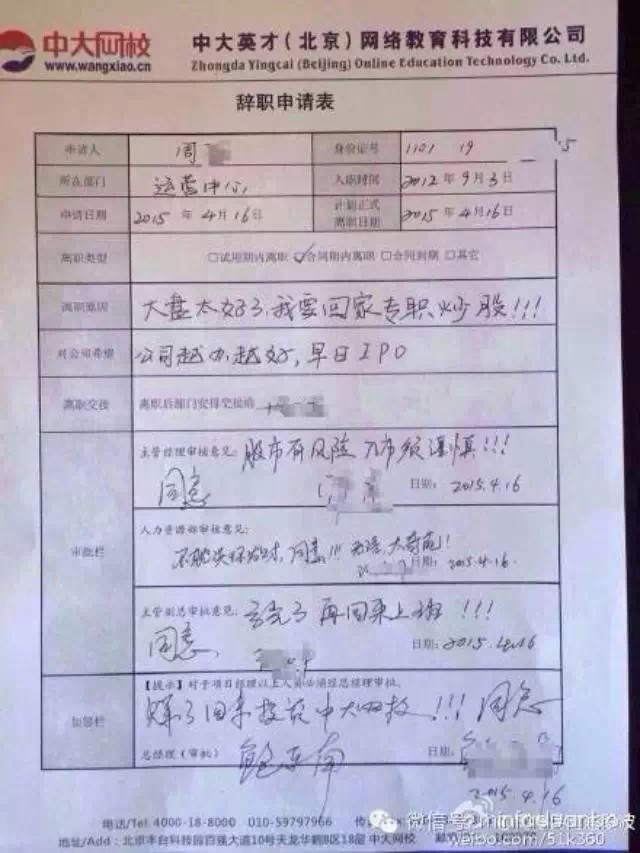 中大网校
www.wangxiao.cn
中大英才(北京)网络教育科技有限公司
Zhongda Yingcai (Beijing) Online Education Technology Co., Ltd.
辞职申请表
申请人 周 身份证号 1101 19 5
所在部门 运营中心 入职时间 2012年9月3日
申请日期 2015年4月16日 计划正式离职日期 2015年4月16日
离职类型 □试用期内离职 ☑合同期内离职 □合同到期 □其它
离职原因 大盘太好了,我要回家专职炒股!!!
对公司希望 公司越办越好,早日IPO
离职交接 离职后部门安排交接给
审批栏
主管经理审核意见: 股市有风险 入市须谨慎!!!
同意 日期: 2015.4.16
人力资源部审核意见:
不能 发财,同意!!!
2015.4.16
主管副总审批意见: 亏完了再回来上班!!!
同意 日期: 2015.4.16
加签栏
【提示】对于项目经理以上人员必须经总经理审批。
赚了回来投资中大网校!!!同意
总经理(审批) 鲍东南 日期:
2015.4.16
电话/Tel 4000-18-8000 010-59797966
地址/Add: 北京丰台科技园百强大道10号天龙华鹤B区18层 中大网校
微信号:
weibo.com/51k360